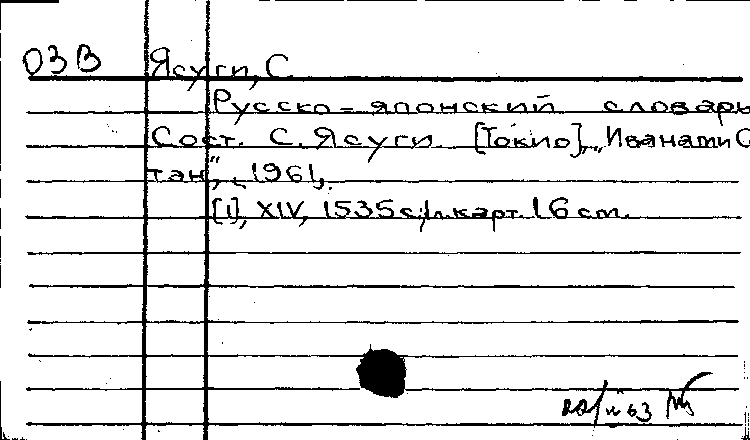 03В Ясуги, С.
Русско-японский словарь
Сост. С. Ясуги. [Токио], „Иванами С
тан", 1961,
[1], XIV, 1535 с; 1 л. карт. 16 cm.